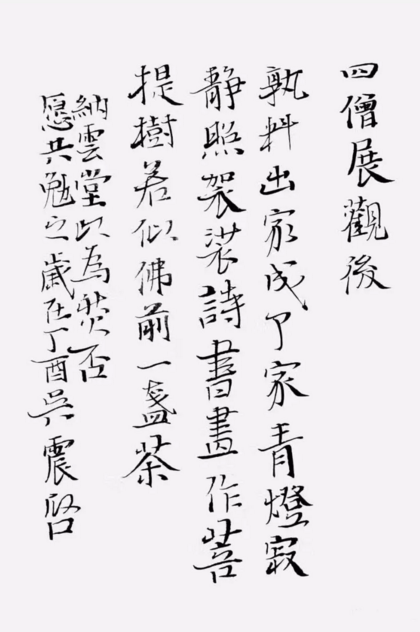 四僧展觀後
孰料出家成了家青燈寂
靜照袈裟詩書畫作菩
提樹若似佛前一盞茶
納雲堂以為然否
愿共勉之歲在丁酉吳震啓